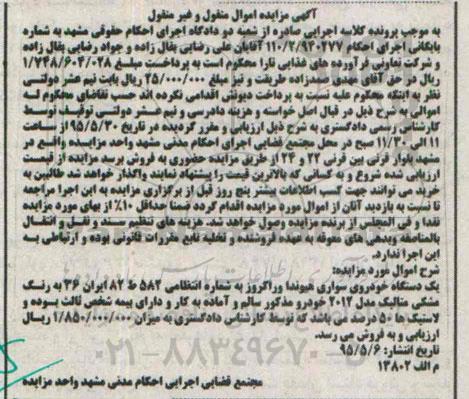 آگهی مزایده اموال منقول و غیر منقول
به موجب پرونده کلاسه اجرایی صادره از شعبه دو دادگاه اجرای احکام حقوقی مشهد به شماره
بایگانی اجرای احکام ۱۱۰/۲/۹۳۰۲۷۷ آقایان علی رضایی بقال زاده و جواد رضایی بقال زاده
و شرکت تعاونی فرآورده های غذایی تارا محکوم است به پرداخت مبلغ ۱/۲۴۸/۶۰۴/۰۲۸
ریال در حق آقای مهدی صمدزاده طریقت و نیز مبلغ ۲۵/۰۰۰/۰۰۰ ریال بابت نیم عشر دولتی
نظر به اینکه محکوم علیه نسبت به پرداخت دیونش اقدامی نکرده اند حسب تقاضای محکوم له
اموالی به شرح ذیل در قبال اصل خواسته و هزینه دادرسی و نیم عشر دولتی توقیف توسط
کارشناس رسمی دادگستری به شرح ذیل ارزیابی و مقرر گردیده در تاریخ ۹۵/۵/۳۰ از ساعت
۱۱ الی ۱۱/۳۰ صبح در محل مجتمع قضایی اجرای احکام مدنی مشهد واحد مزایده واقع در
مشهد بلوار قرنی بین قرنی ۲۲ و ۲۴ از طریق مزایده حضوری به فروش برسد مزایده از قیمت
ارزیابی شده شروع و به کسانی که بالاترین قیمت را پیشنهاد نمایند واگذار خواهد شد. طالبین به
خرید می توانند جهت کسب اطلاعات بیشتر پنج روز قبل از برگزاری مزایده به این اجرا مراجعه
تا نسبت به بازدید آنان از اموال مورد مزایده اقدام گردد ضمنا حداقل ۱۰٪ از بهای مورد مزایده
نقدا و فی المجلس از برنده مزایده وصول خواهد شد. هزینه های تنظیم سند و نقل و انتقال
بالمناصفه وبدهی های معوقه به عهده فروشنده و تخلیه تابع مقررات قانونی بوده و ارتباطی به
این اجرا ندارد.
شرح اموال مورد مزایده:
یک دستگاه خودروی سواری هیوندا وراکروز به شماره انتظامی ۵۸۲ ط ۸۲ ایران ۳۶ به رنگ
مشکی متالیک مدل ۲۰۱۲ خودرو مذکور سالم و آماده به کار و دارای بیمه شخص ثالث بوده و
لاستیک ها ۵۰ درصد می باشد که توسط کارشناس دادگستری به میزان ۱/۸۵۰/۰۰۰/۰۰۰ ریال
ارزیابی و به فروش می رسد.
تاریخ انتشار: ۹۵/۵/۶
م الف ۱۳۸۰۲
مجتمع قضایی اجرایی احکام مدنی مشهد واحد مزایده
۰۲۱-۸۸۳۴۹۶۷۰